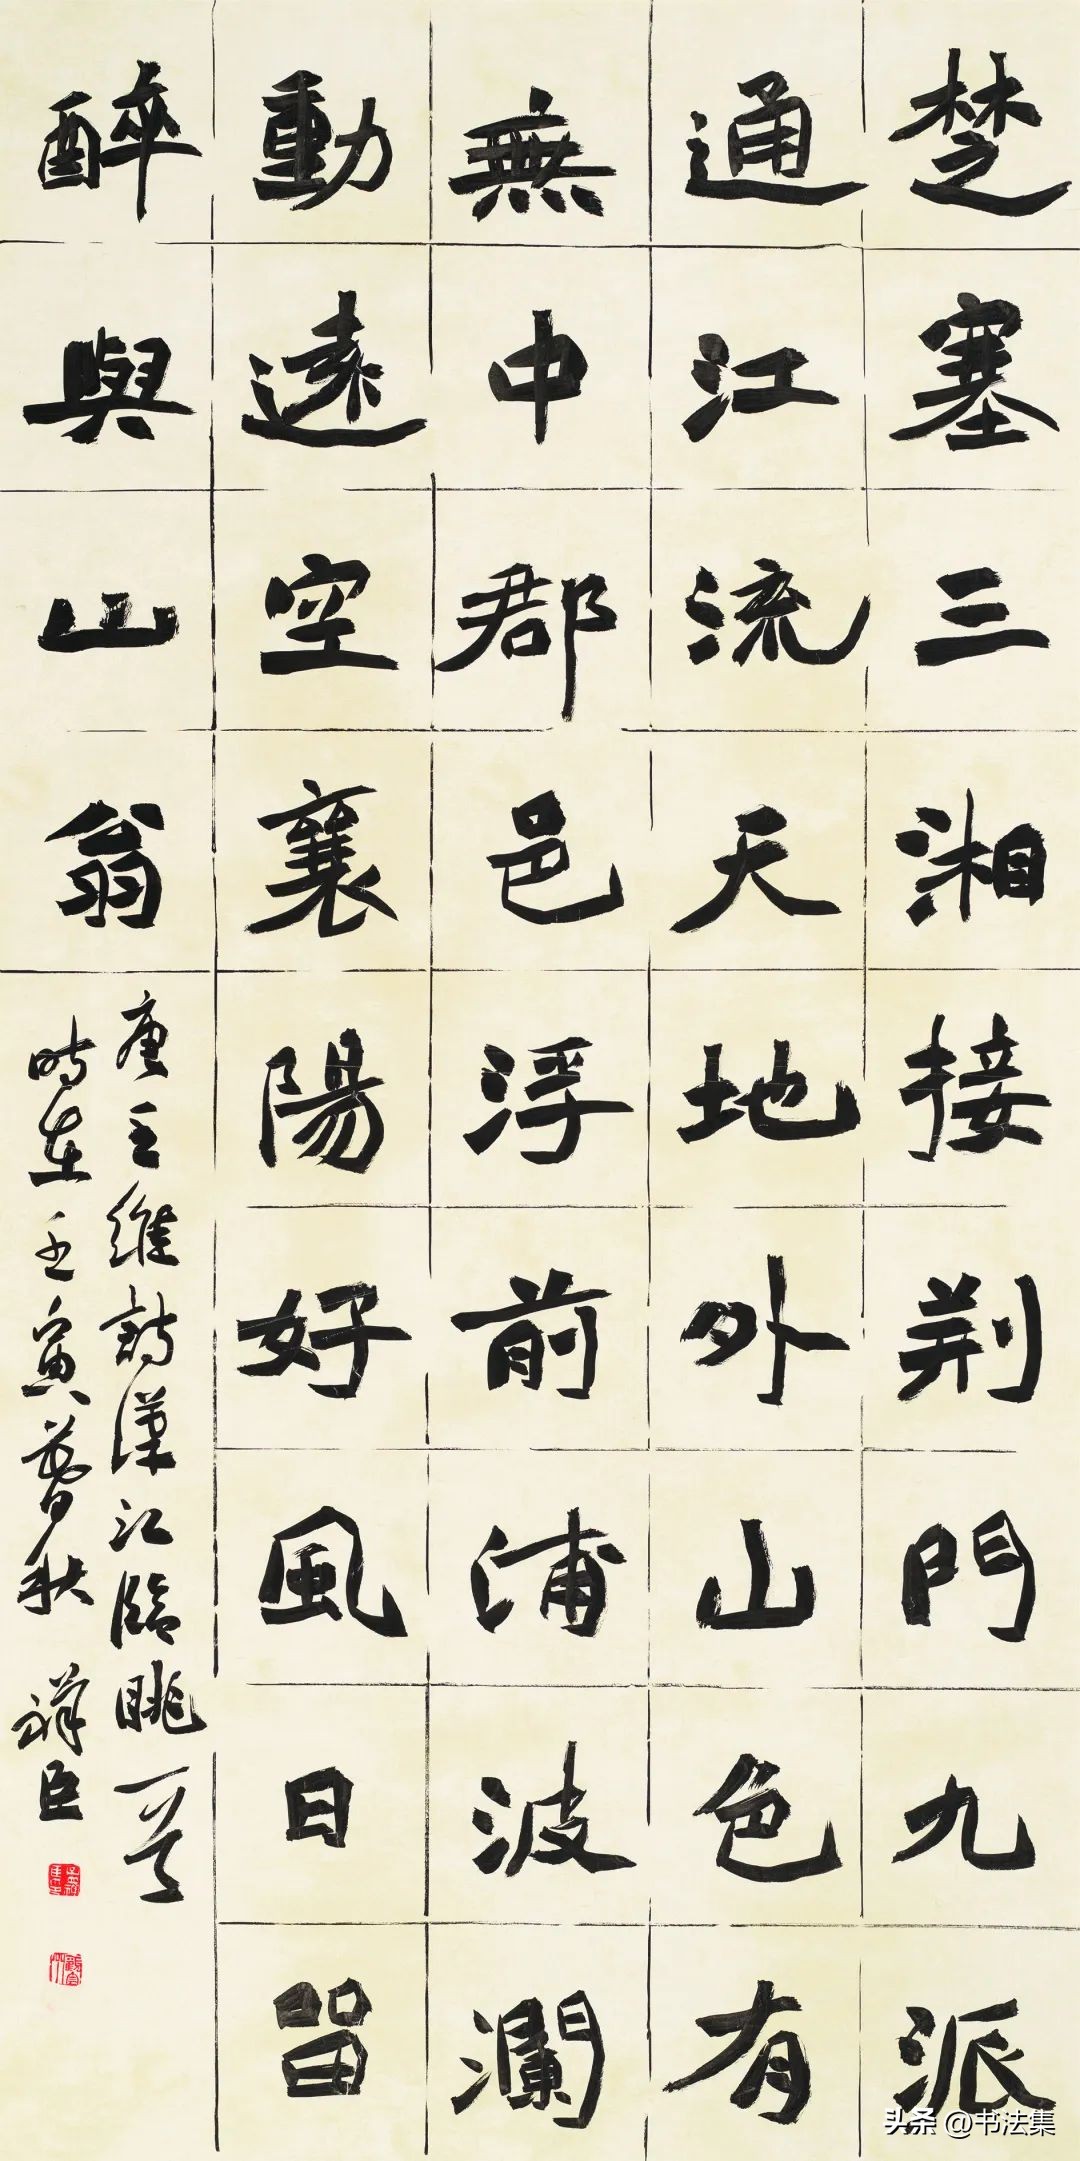 楚塞三湘接荆門九派
通江流天地外山色有
無中郡邑浮前浦波瀾
動遠空襄陽好風日留
醉與山翁
唐王維詩漢江臨眺一首
時在壬寅暮秋 祥臣
头条 @书法集